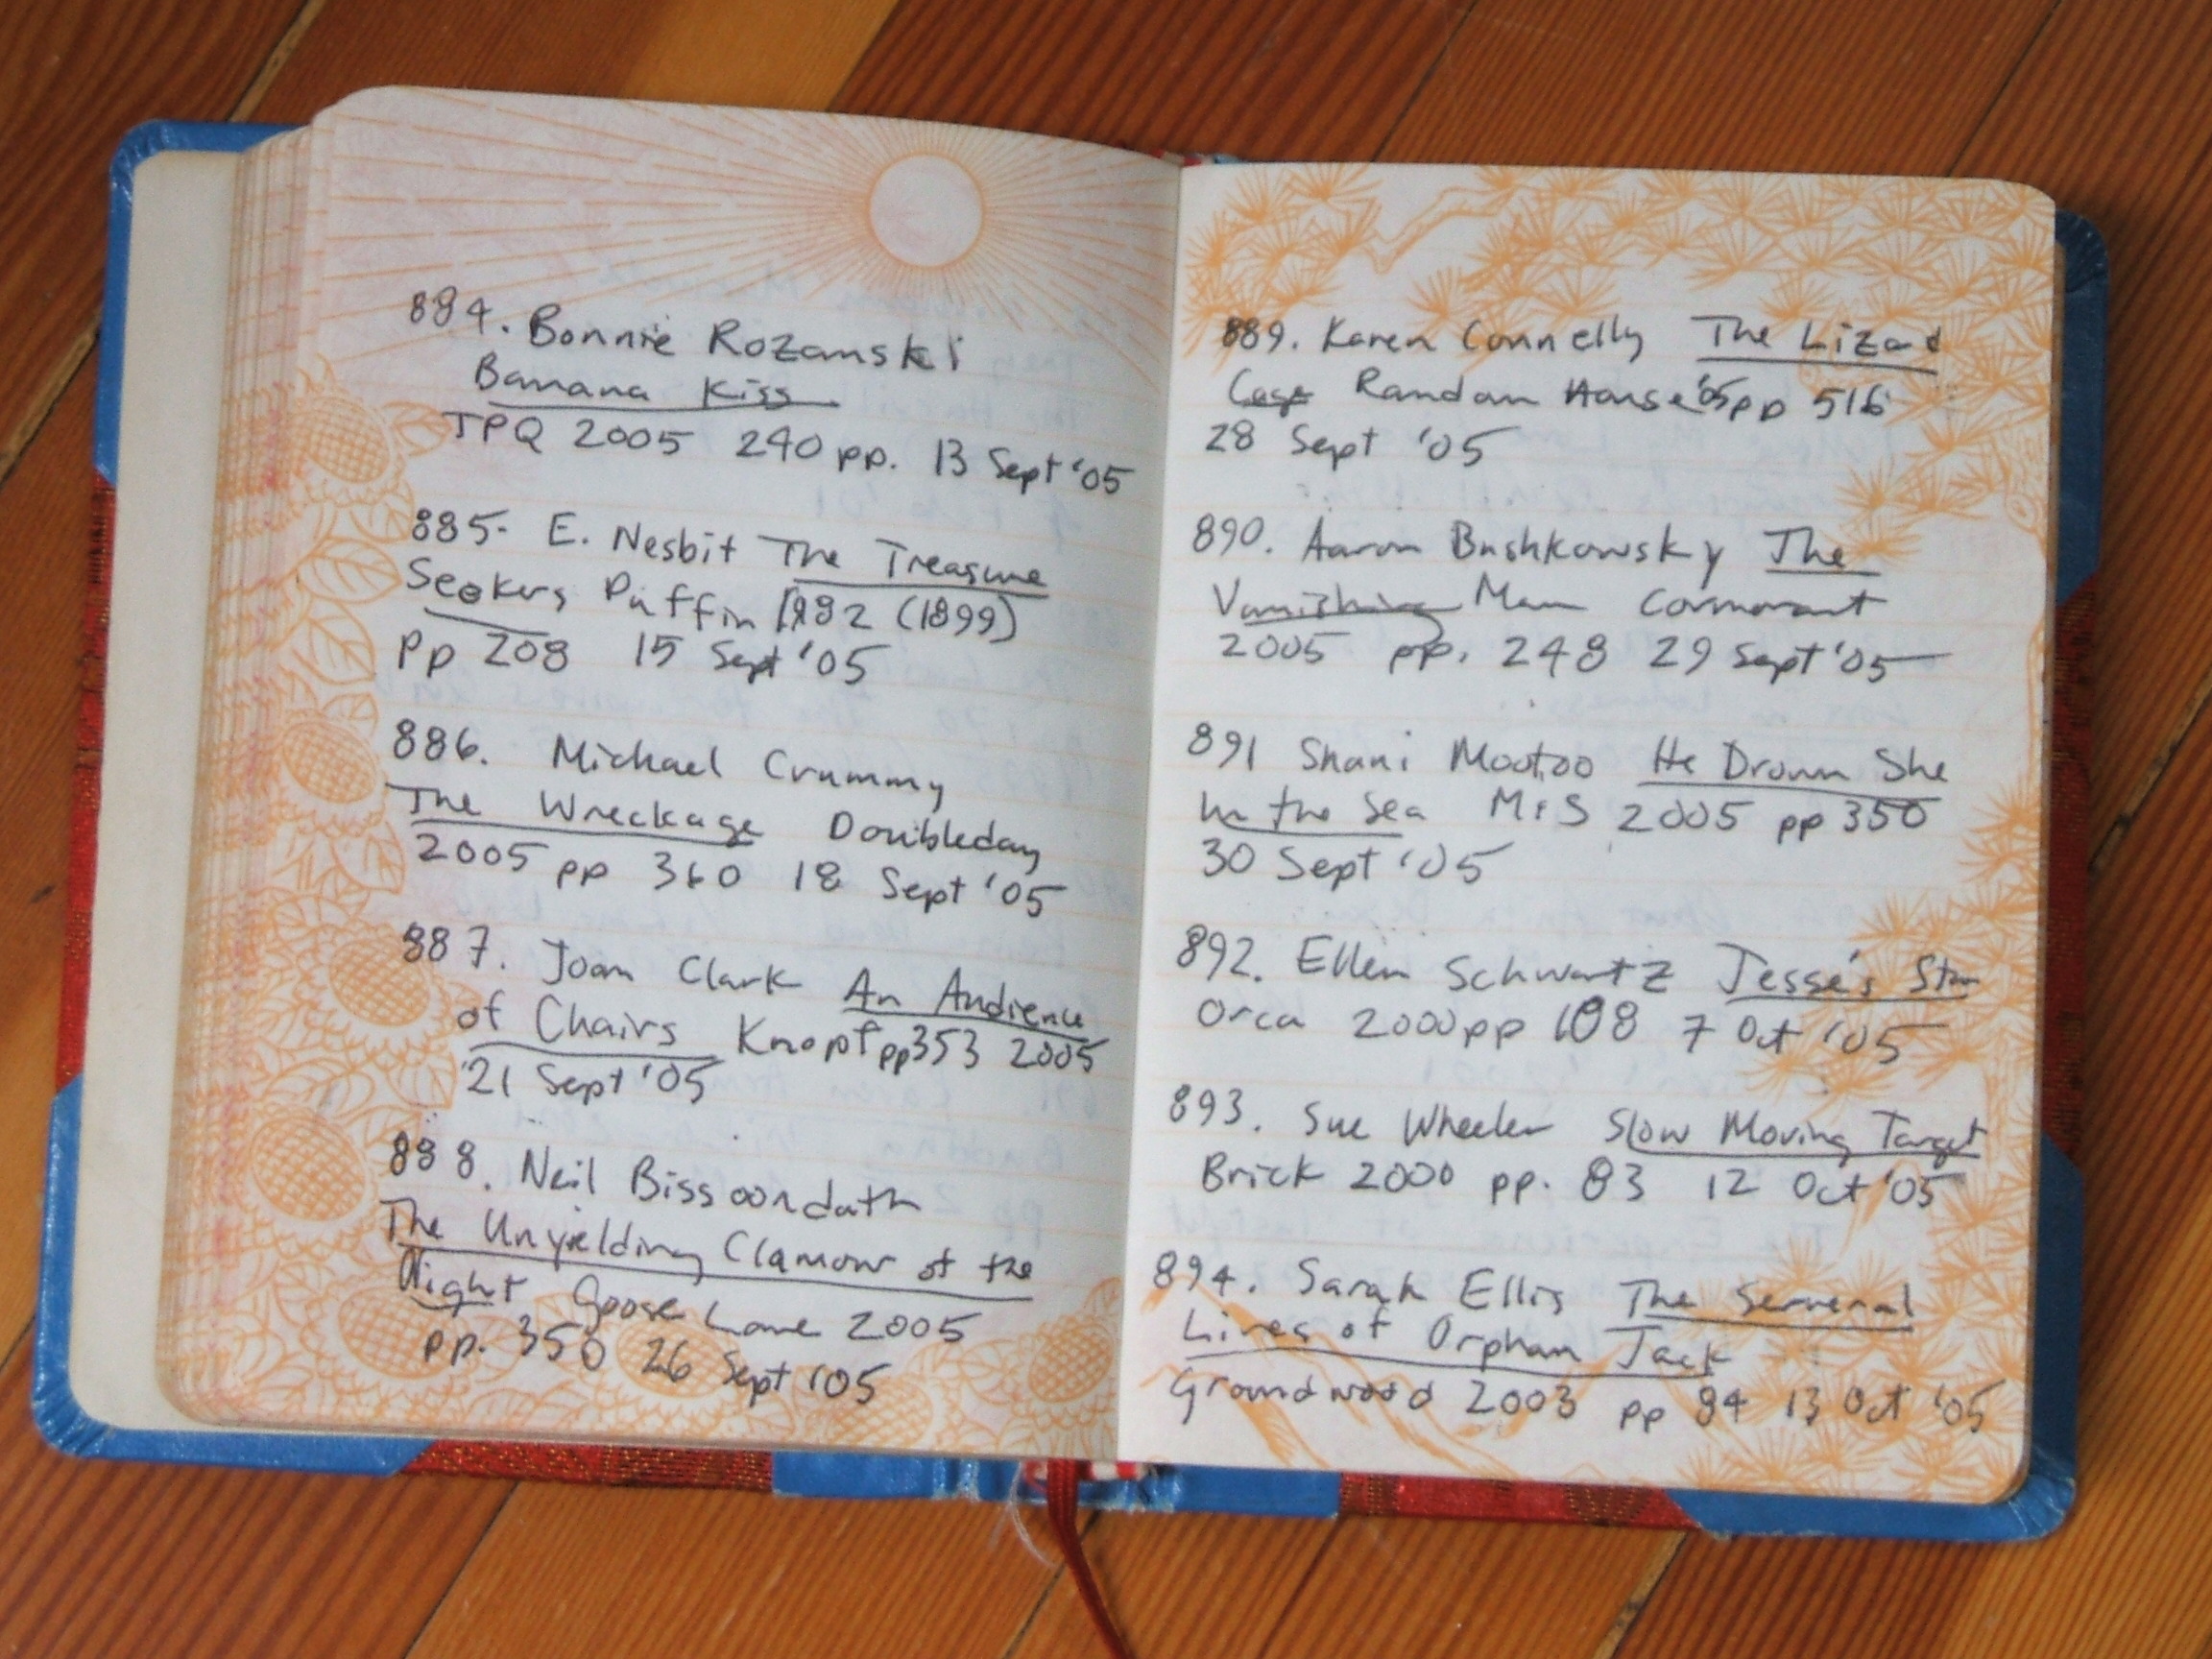 884. Bonnie Rozanski
Banana Kiss
TPQ 2005 240 pp. 13 Sept '05
885. E. Nesbit The Treasure
Seekers Puffin 1982 (1899)
pp 208 15 Sept '05
886. Michael Crummy
The Wreckage Doubleday
2005 pp 360 18 Sept '05
887. Joan Clark An Audience
of Chairs Knopf pp 353 2005
21 Sept '05
888. Neil Bissoondath
The Unyielding Clamour of the
Night Goose Lane 2005
pp. 350 26 Sept '05
889. Karen Connelly The Lizard
Cage Random House '05 pp 516
28 Sept '05
890. Aaron Bushkowsky The
Vanishing Man Cormorant
2005 pp. 248 29 Sept '05
891 Shani Mootoo He Drown She
in the Sea M+S 2005 pp 350
30 Sept '05
892. Ellen Schwartz Jesse's Star
Orca 2000 pp 108 7 Oct '05
893. Sue Wheeler Slow Moving Target
Brick 2000 pp. 83 12 Oct '05
894. Sarah Ellis The Serveral
Lives of Orphan Jack
Groundwood 2003 pp 84 13 Oct '05